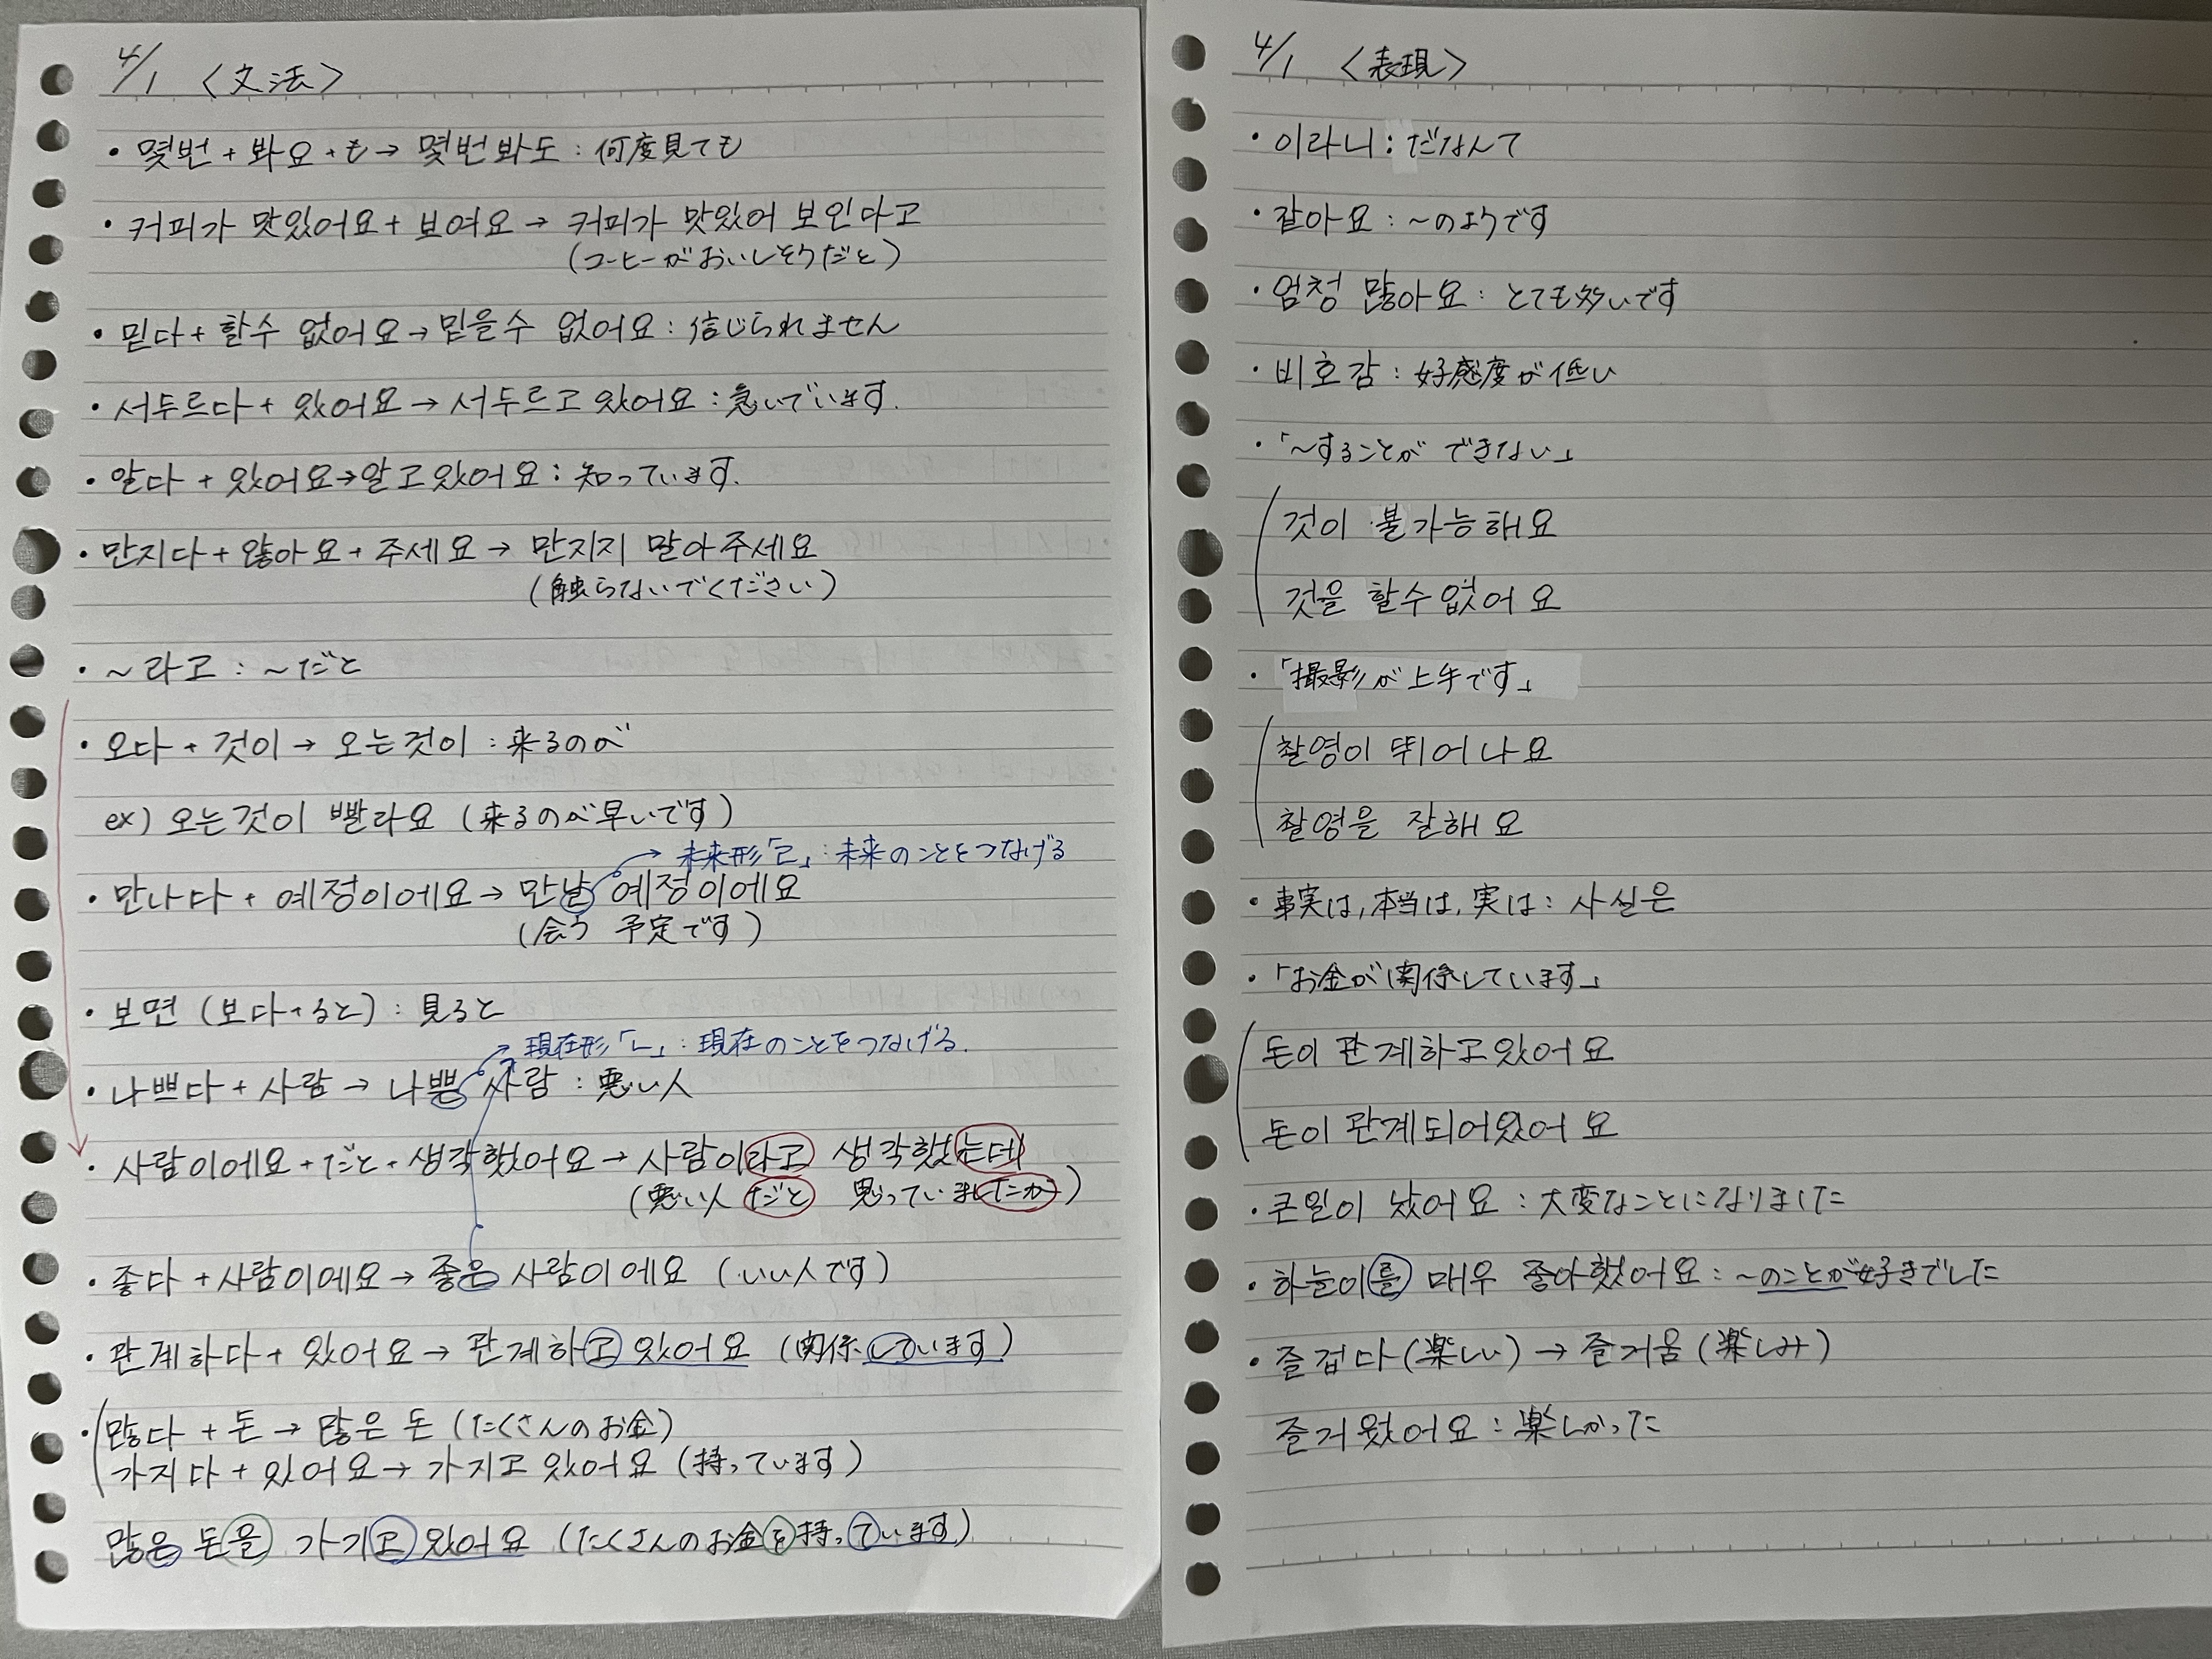 4/1 〈文法〉
・몇번 + 봐요 + も → 몇번봐도 : 何度見ても
・커피가 맛있어요 + 보여요 → 커피가 맛있어 보인다고
(コーヒーがおいしそうだと)
・믿다 + 할수 없어요 → 믿을수 없어요 : 信じられません
・서두르다 + 있어요 → 서두르고 있어요 : 急いでいます.
・알다 + 있어요 → 알고있어요 : 知っています.
・만지다 + 않아요 + 주세요 → 만지지 말아주세요
(触らないでください)
・~라고 : ~だと
・오다 + 것이 → 오는것이 : 来るのが
ex) 오는것이 빨라요 (来るのが早いです)
→ 未来形「ㄹ」: 未来のことをつなげる
・만나다 + 예정이에요 → 만날 예정이에요
(会う 予定です)
・보면 (보다+ると) : 見ると
→ 現在形「ㄴ」: 現在のことをつなげる.
・나쁘다 + 사람 → 나쁜 사람 : 悪い人
・사람이에요 + だと + 생각했어요 → 사람이라고 생각했는데
(悪い人だと 思っていましたが)
・좋다 + 사람이에요 → 좋은 사람이에요 (いい人です)
・관계하다 + 있어요 → 관계하고 있어요 (関係しています)
・많다 + 돈 → 많은 돈 (たくさんのお金)
가지다 + 있어요 → 가지고 있어요 (持っています)
많은 돈을 가지고 있어요 (たくさんのお金を持っています)
4/1 〈表現〉
・이라니 : だなんて
・같아요 : ~のようです
・엄청 많아요 : とても多いです
・비호감 : 好感度が低い
・「~することが できない」
것이 불가능해요
것을 할수없어요
・「撮影が上手です」
촬영이 뛰어나요
촬영을 잘해요
・事実は, 本当は, 実は : 사실은
・「お金が関係しています」
돈이 관계하고있어요
돈이 관계되어있어요
・큰일이 났어요 : 大変なことになりました
・하늘이를 매우 좋아했어요 : ~のことが好きでした
・즐겁다 (楽しい) → 즐거움 (楽しみ)
즐거웠어요 : 楽しかった